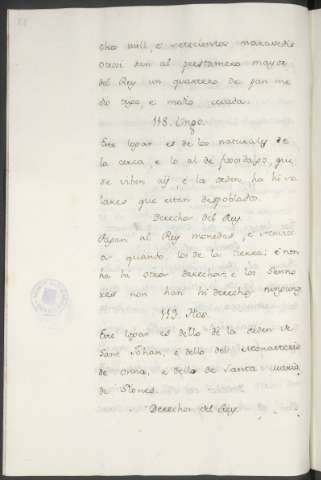 cho mill, e trecientos maravedis
otrosi dan al prestamero mayor
del Rey un quartero de pan me
dio trigo, e medio cevada.
118. Lingo.
Este logar es de los naturales de
la cerca, e lo al de fijosdalgo, que
se viben ay, e la orden, ha hi va
lares que estan despoblados.
Derechos del Rey
Pagan al Rey monedas, e servici
os quanto los de la tierra: e non
ha hi otros derechos, e los Senno
res non han hi derecho ninguno
119. Hoz.
Este logar es dello de la orden de
Sant Johan, e dello del Monasterio
de Onna, e dello de Santa Maria
de Siones.
Derechos del Rey